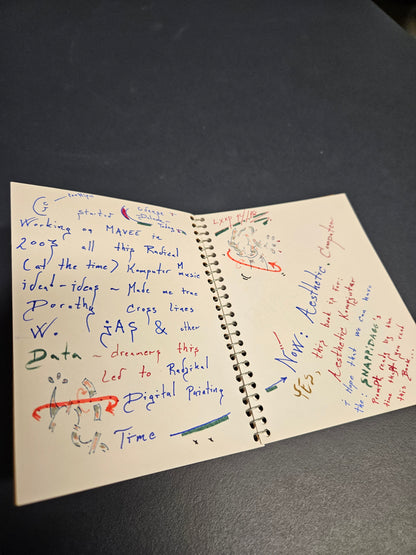 started
Working on MAVCC in
2003 all this Radical
(at the time) Komputer music
ideal-ideas ~ Made me true
Dorothy Cross lines
W. (jAS) & other
Data ~ dreamery this
Led to Radikal
Digital Painting
Time
Now: Aesthetic. Computer
YES, this book is for:
Aesthetic Komputer
i hope that we can have
the: SNAPPIDAGS:
ready by the
time you read
this